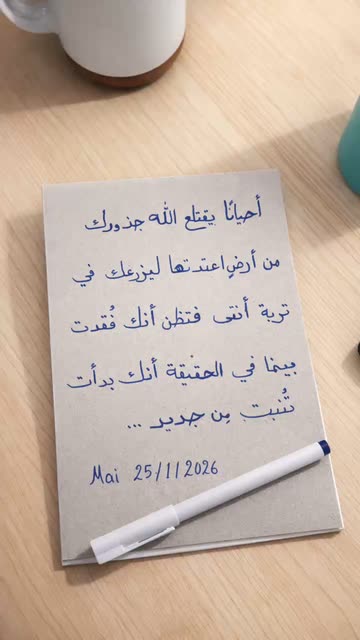 أحيانًا يقتلع الله جذورك
من أرضٍ اعتدتها ليزرعك في
تربة أنقى فتظن أنك فُقدت
بينما في الحقيقة أنك بدأت
تُنبت من جديد ...
Mai 25/1/2026